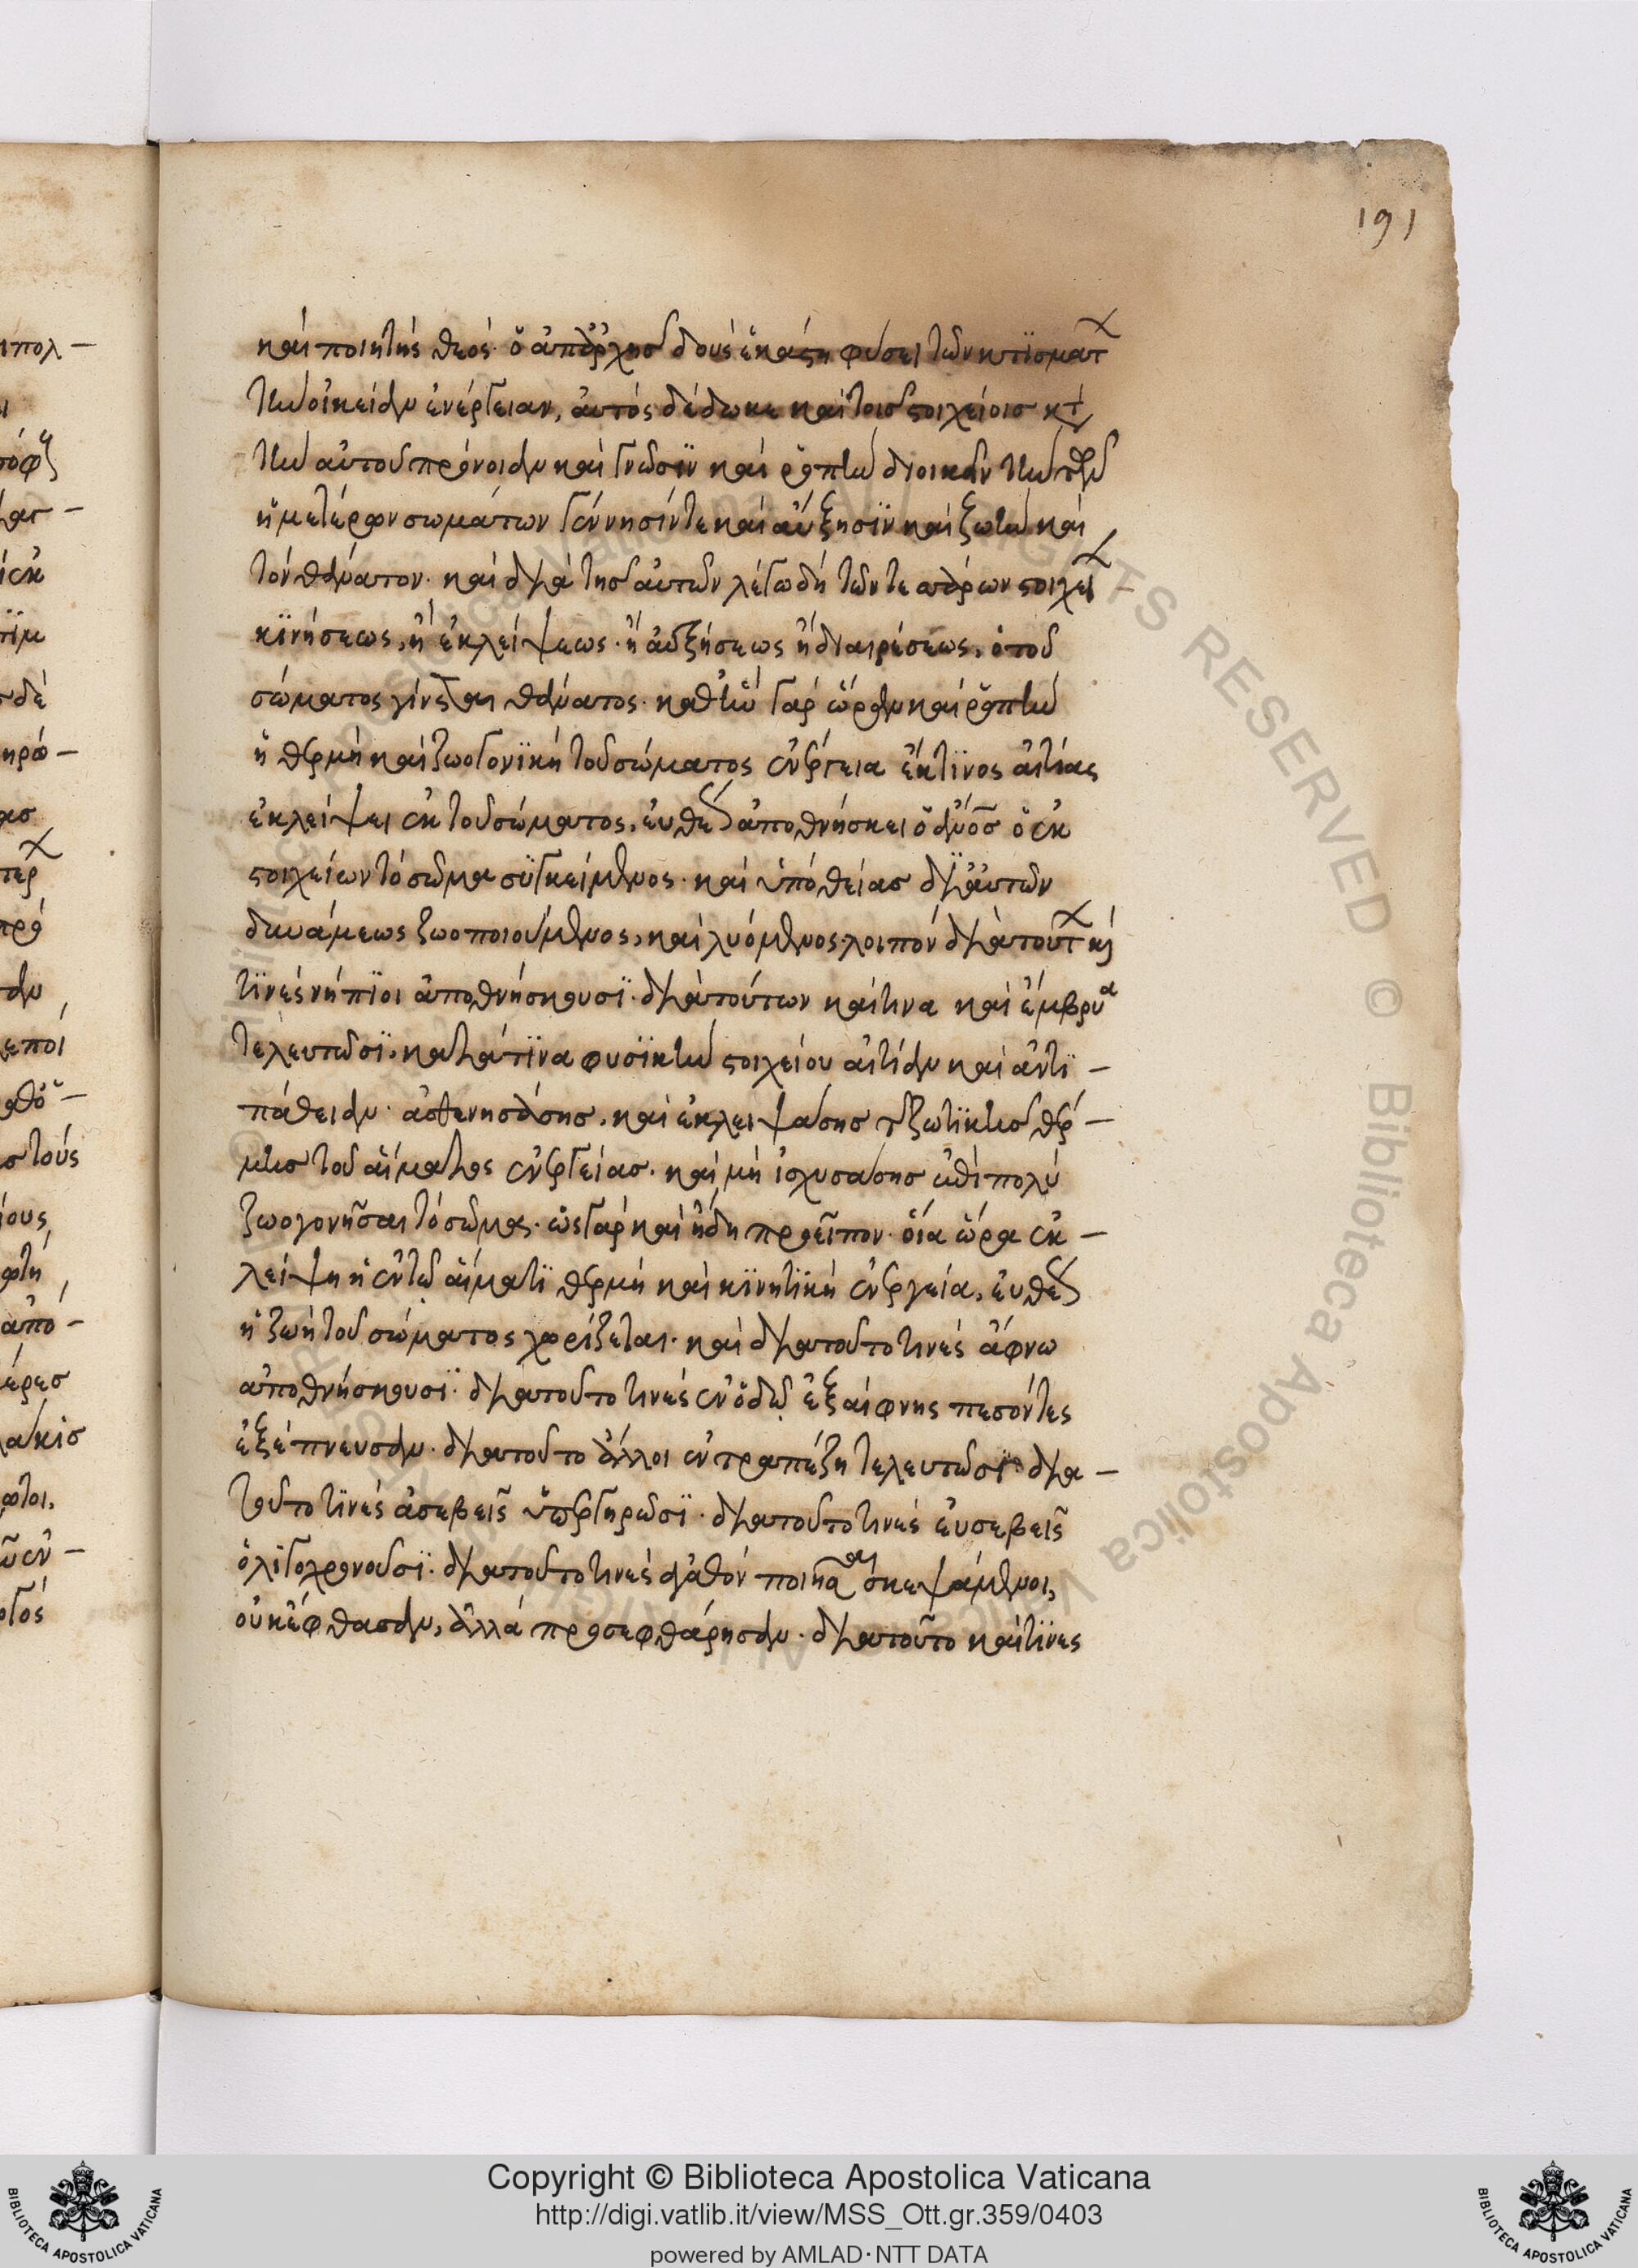 191
καὶ ποιητὴς θεός· ὁ ἀπαρχῆς δοὺς ἑκάστη φύσει τῶν κτϊσμάτ
τὴν οἰκείαν ἐνέργειαν, αὐτὸς δέδωκε καὶ τοῖς στοιχείοις κτ
τὴν αὐτοῦ πρόνοιαν καὶ γνῶσϊν καὶ ῥοπὴν διοικεῖν τὴν τῶν
ἡμετέρων σωμάτων γέννησίν τε καὶ αὔξησϊν καὶ ζωὴν καὶ
τὸν θάνατον· καὶ διὰ τῆς αὐτῶν λέγω δὴ τῶν τεσσάρων στοιχεί
κϊνήσεως, ἢ ἐκλείψεως· ἢ αὐξήσεως ἢ διαιρέσεως, ὁ τοῦ
σώματος γίνεται θάνατος· καθ' ἣν γὰρ ὥραν καὶ ῥοπὴν
ἡ θερμὴ καὶ ζωογονϊκὴ τοῦ σώματος ἐνέργεια ἔκ τϊνος αἰτίας
ἐκλείψει ἐκ τοῦ σώματος, εὐθέως ἀποθνήσκει ὁ ἄνος ὁ ἐκ
στοιχείων τὸ σῶμα συγκείμενος· καὶ ὑπὸ θείας δι' αὐτῶν
δυνάμεως ζωοποιούμενος, καὶ λυόμενος· λοιπὸν διὰ τούτ καὶ
τϊνὲς νήπϊοι ἀποθνήσκουσϊ· διὰ τούτων καί τινα καὶ ἔμβρυα
τελευτῶσϊ· κατά τϊνα φυσϊκὴν στοιχείου αἰτίαν καὶ ἀντϊ –
πάθειαν· ἀσθενησάσης, καὶ ἐκλειψάσης τῆς ζωτϊκῆς θερ –
μῆς τοῦ αἵματος ἐνεργείας· καὶ μὴ ἰσχυσάσης ἐπὶ πολὺ
ζωογονῆσαι τὸ σῶμα· ὡς γὰρ καὶ ἤδη προεῖπον· οἵα ὥρα ἐκ –
λείψη ἡ ἐν τῷ αἵματϊ θερμὴ καὶ κϊνητϊκὴ ἐνεργεία, εὐθέως
ἡ ζωὴ τοῦ σώματος χωρίζεται· καὶ διὰ τοῦτο τινὲς ἄφνω
ἀποθνήσκουσϊ· διὰ τοῦτο τινὲς ἐν ὁδῷ ἐξαίφνης πεσόντες
ἐξέπνευσαν· διὰ τοῦτο ἄλλοι ἐν τραπέζη τελευτῶσϊ· δια –
τοῦτο τϊνὲς ἀσεβεῖς ὑπεργηρῶσϊ· διὰ τοῦτο τινὲς εὐσεβεῖς
ὀλιγοχρονοῦσϊ· διὰ τοῦτο τινὲς ἀγαθὸν ποιῆσαι σκεψάμενοι,
οὐκ ἔφθασαν, ἀλλὰ προσεφθάρησαν· διὰ τοῦτο καί τϊνες
Copyright © Biblioteca Apostolica Vaticana
http://digi.vatlib.it/view/MSS_Ott.gr.359/0403
powered by AMLAD·NTT DATA